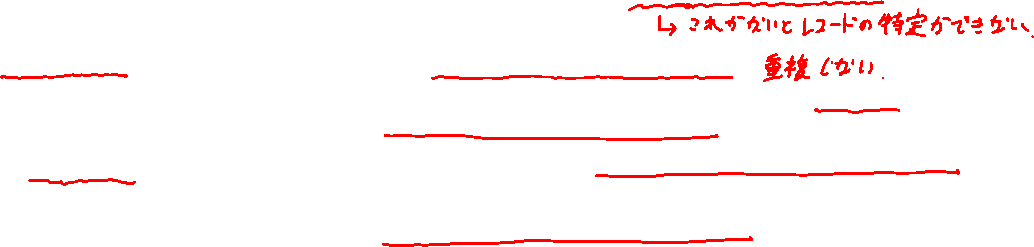 ↳ これがないとレコードの特定ができない.
重複しない.